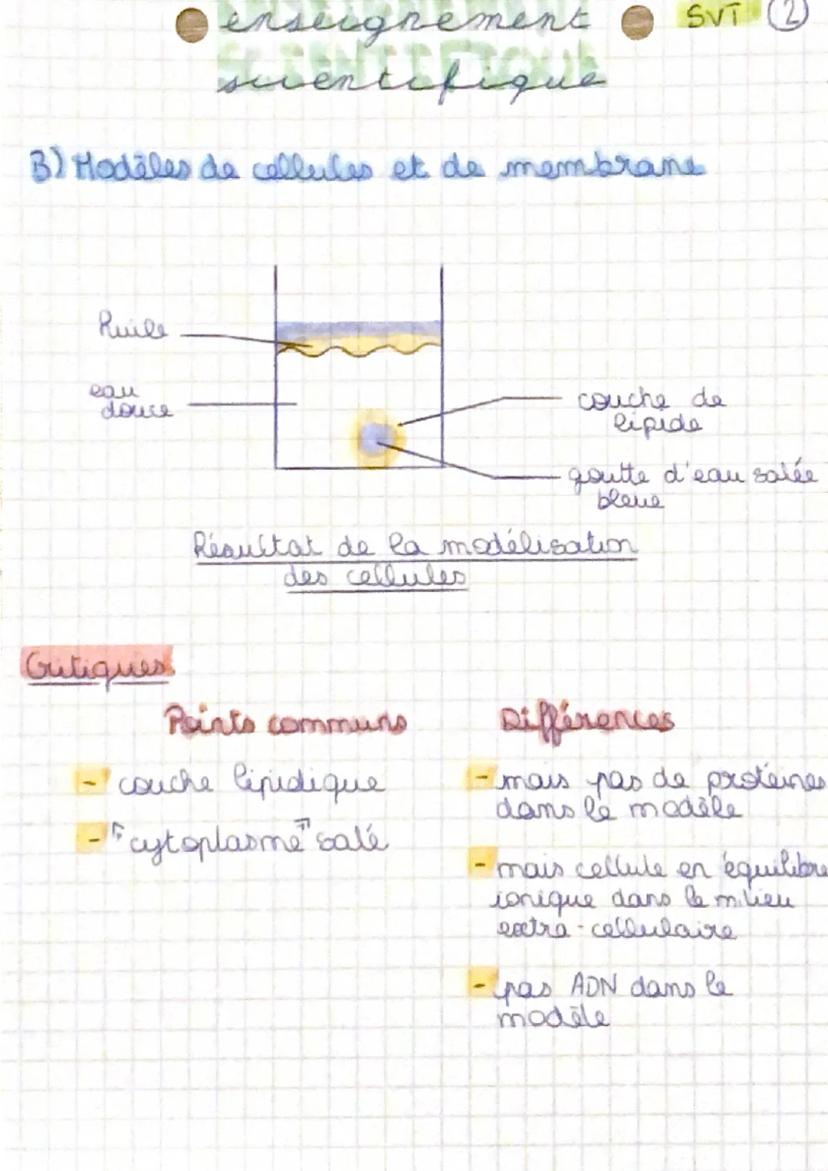 enseignement
SCIENTIFIQUE
scientifique
SVT 2
B) Modèles de cellules et de membrane
huile
eau
douce
couche de
lipide
goutte d'eau salée
bleue
Résultat de la modélisation
des cellules
Critiques
Points communs
- couche lipidique
- "cytoplasme" salé
Différences
- mais pas de protéines
dans le modèle
- mais cellule en équilibre
ionique dans le milieu
extra-cellulaire
- pas ADN dans le
modèle